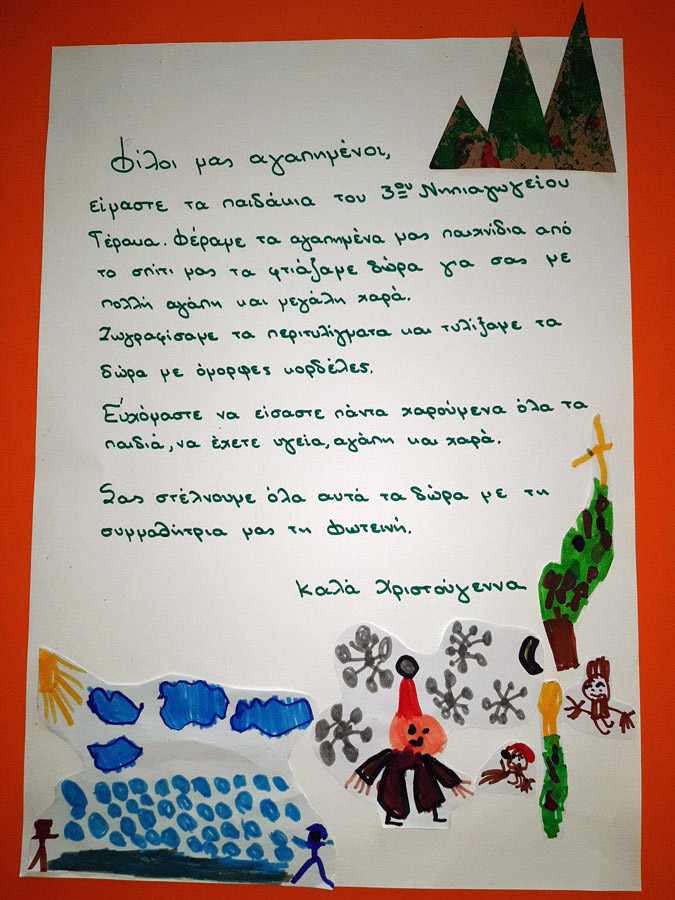 Φίλοι μας αγαπημένοι,
είμαστε τα παιδάκια του 3ου Νηπιαγωγείου
Γέρακα. Φέραμε τα αγαπημένα μας παιχνίδια από
το σπίτι μας τα φτιάξαμε δώρα για σας με
πολλή αγάπη και μεγάλη χαρά.
Ζωγραφίσαμε τα περιτυλίγματα και τυλίξαμε τα
δώρα με όμορφες κορδέλες.
Ευχόμαστε να είσαστε πάντα χαρούμενα όλα τα
παιδιά, να έχετε υγεία, αγάπη και χαρά.
Σας στέλνουμε όλα αυτά τα δώρα με τη
συμμαθήτρια μας τη Φωτεινή.
Καλά Χριστούγεννα